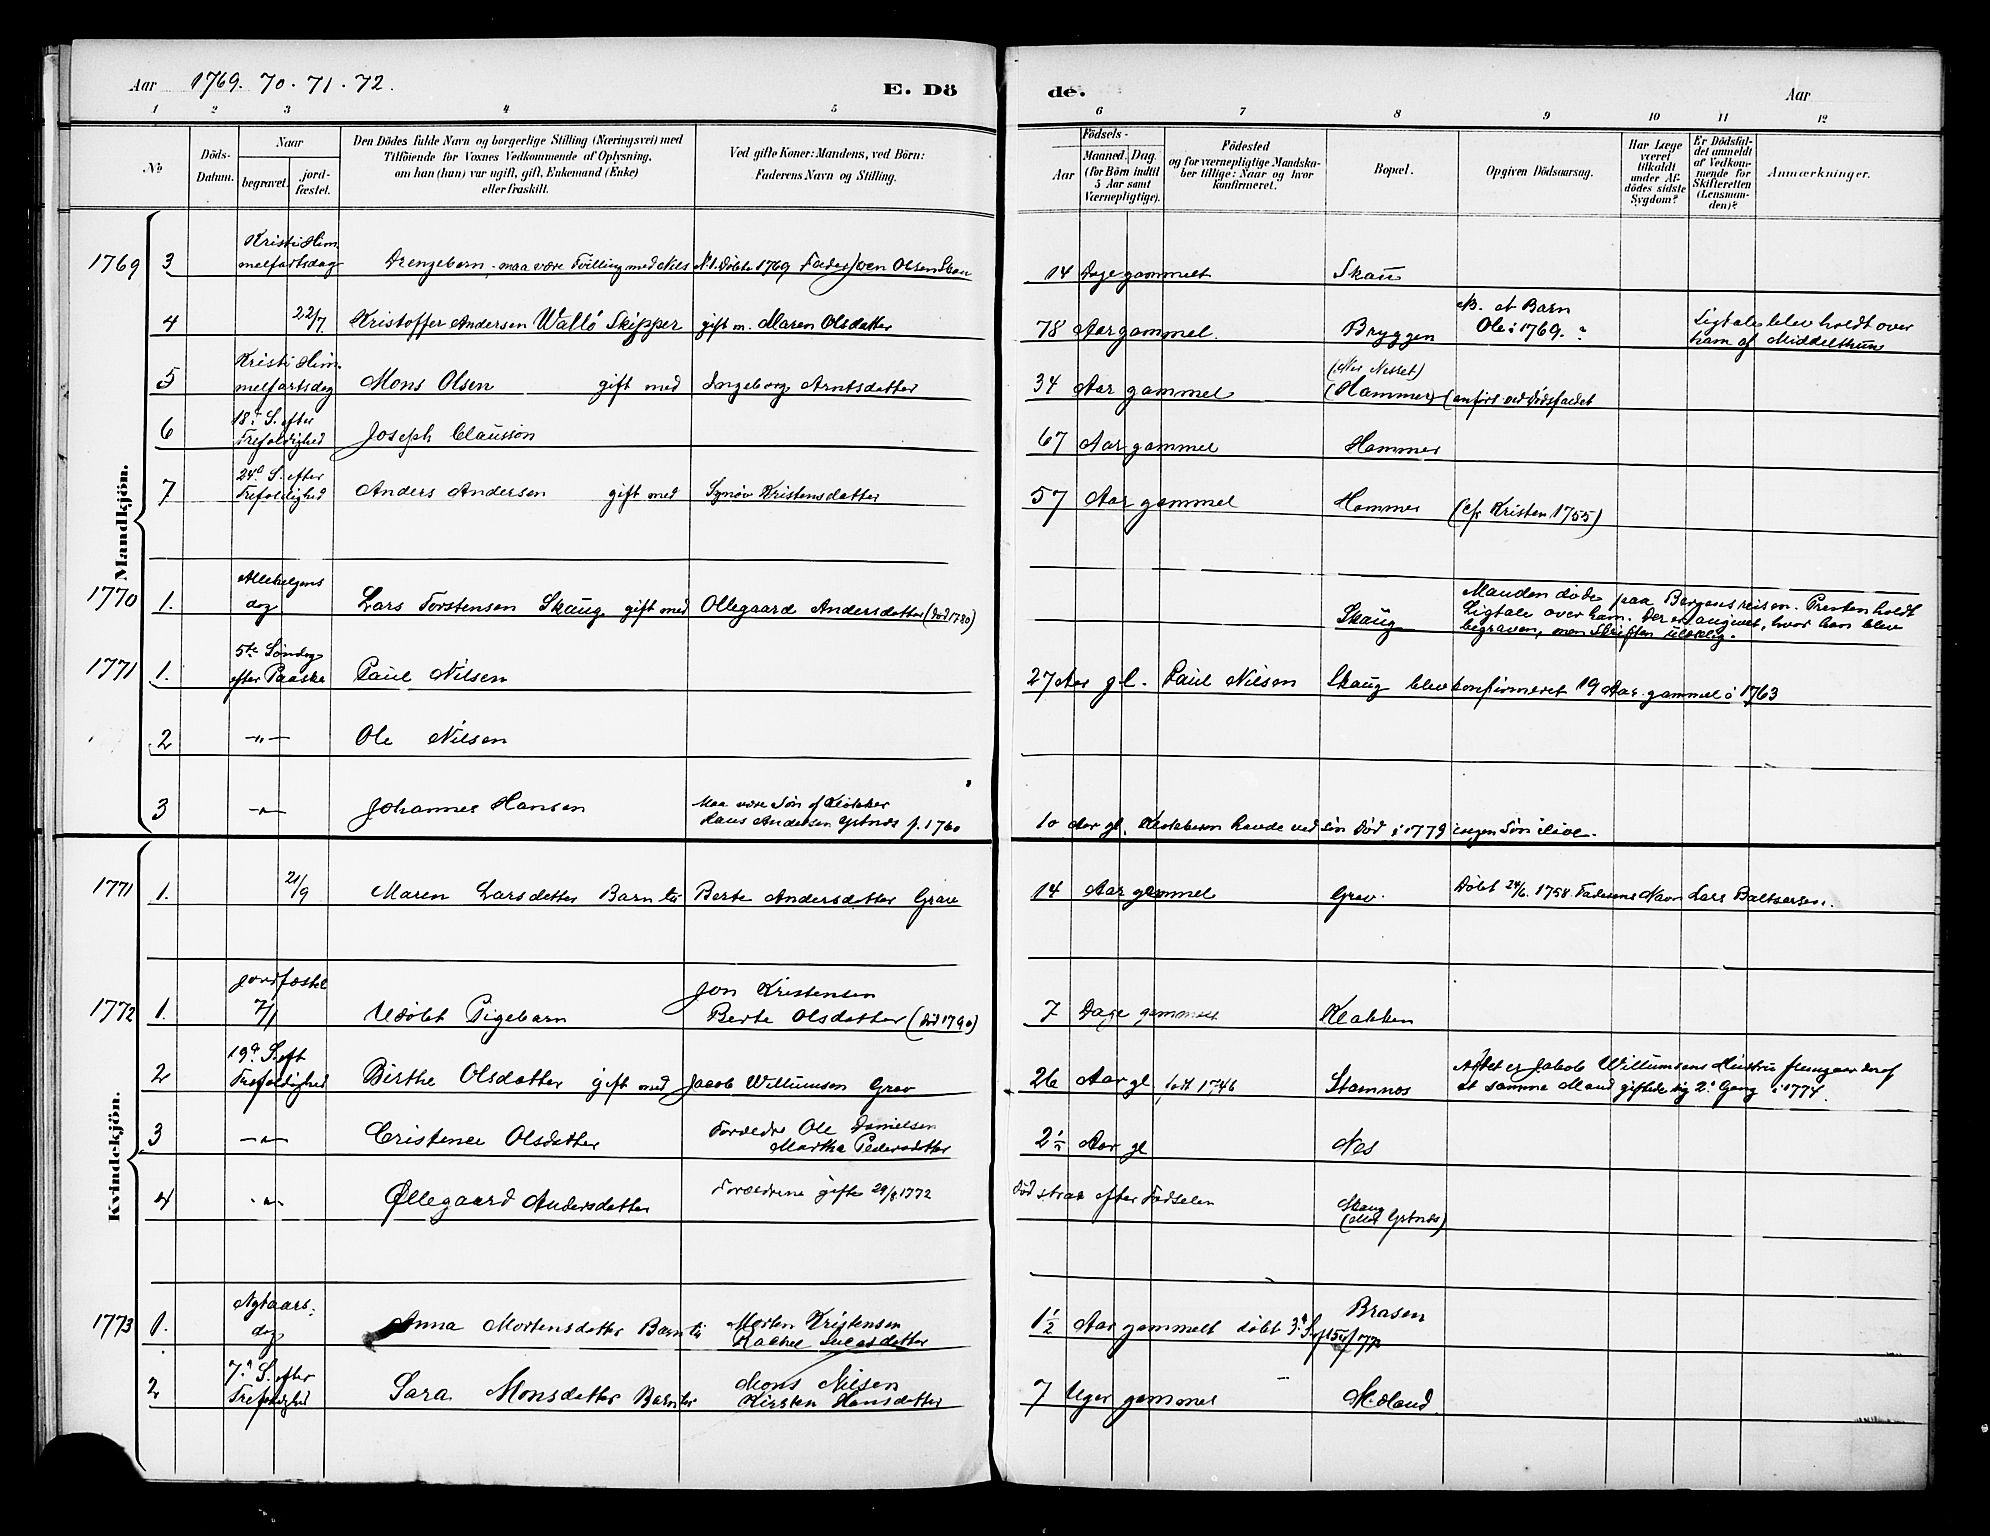 Aar 1769. 70. 71. 72.
E. Dö
de.
Aar
1 2 3 4 5
6 7 8 9 10 11 12
No
Döds-Datum.
Naar
begravet.
jord-fæstet.
Den Dödes fulde Navn og borgerlige Stilling (Næringsvei) med
Tilföiende for Voxnes Vedkommende af Oplysning,
om han (hun) var ugift, gift, Enkemand (Enke)
eller fraskilt.
Ved gifte Koner: Mandens, ved Börn:
Faderens Navn og Stilling.
Födsels-
Aar
Maaned. Dag.
(for Börn indtil
5 Aar samt
Værnepligtige).
Födested
og for værnepligtige Mandska-
ber tillige: Naar og hvor
konfirmeret.
Bopæl.
Opgiven Dödsaarsag.
Har Læge
været
tilkaldt
under Af-
dödes sidste
Sygdom?
Er Dödsfal-
det anmeldt
af Vedkom-
mende for
Skifteretten
(Lensman-
den)?
Anmærkninger.
Mandkjön.
1769 3 Kristi Him-
melfartsdag Drengebarn, maa være Tvilling med Nils N.1. Døbte 1769 Fader Iven Olsen Skau 14 Dage gammelt Skau
4 22/7 Kristoffer Andersen Wallö Skipper gift m. Maren Olsdatter 78 Aar gammel. Bryggen NB. et Barn
Ole i 1769. Ligtale blev holdt over
ham af Middelthun
5 Kristi Him-
melfartsdag Mons Olsen gift med Ingeborg Arntsdatter 34 Aar gammel (Hammer) (anført ved Dødsfaldet
6 18d S. efter
Trefoldighed Joseph Clauson 67 Aar gammel Hammer
7 24d S. efter
Trefoldighed Anders Andersen gift med Synøv Kristensdatter 57 Aar gammel Hammer (cfr Kristen 1755)
1770 1. Allehelgens
dag Lars Torstensen Skaug gift med Ollegaard Andersdatter (død 1780) Skaug Manden døde paa Bergensreisen. Presten holdt
Ligtale over ham. Der er angivet, hvor han blev
begraven, men Skriften ulæselig.
1771 1. 5te Søndag
efter Paaske Paul Nilsen 27 Aar gl. Paul Nilsen Skaug blev konfirmeret 19 Aar gammel i 1763
2 -"- Ole Nilsen
3 -"- Johannes Hansen Maa være Søn af Klokker
Hans Andersen Ystnes f. 1760 10 Aar gl. Klokkeren havde ved sin Død i 1779 ingen Søn ilive.
Kvindekjön.
1771 1. 21/9 Maren Larsdatter Barn til Berte Andersdatter Grav 14 Aar gammel Grav. Døbt 24/6 1758 Faderens Navn Lars Baltsersen.
1772 1. Jordfæstet
7/1 Udøbt Pigebarn Jon Kristensen
Berte Olsdatter (død 1790) 7 Dage gammelt Klakken
2 19d S. eft
Trefoldighed Birthe Olsdatter gift med Jacob Willumsen Grav 26 Aar gl født 1746 Stamnes At det er Jakob Willumsens Hustru fremgaar deraf
at samme Mand giftede sig 2d Gang i 1774.
3 -"- Cristence Olsdatter Foreldre Ole Danielsen
Martha Pedersdatter 2½ Aar gl Nes
4 -"- Øllegaard Andersdatter Forældrene gifte 29/9 1772 Død strax efter Fødselen Skaug
(eller Ystnes)
1773 1. Nytaars-
dag Anna Mortensdatter Barn til Morten Kristensen
Rachel Lucasdatter 1½ Aar gammelt døbt 3d S. Brasen
2 7d S. efter
Trefoldighed Sara Monsdatter Barn til Mons Nilsen
Kirsten Hansdatter 7 Uger gammel Mæland